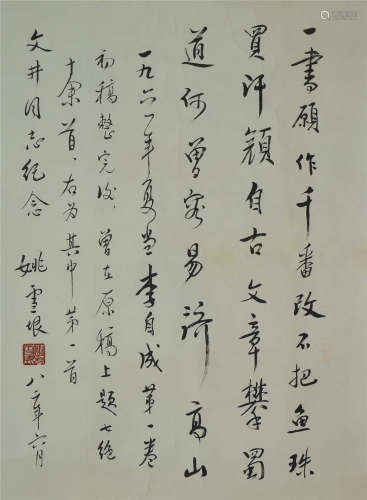 一書願作千番改不把鱼珠
買汗顔自古文章攀蜀
道何曾容易跻高山
一九六一年夏尝李自成第一卷
初稿整完後，曾在原稿上题七绝
十余首，右为其中第一首
文井同志纪念
姚雪垠 八二年六月